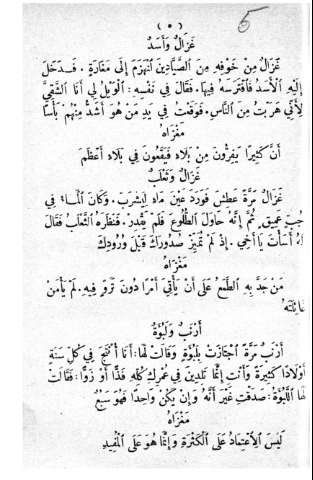 ( ٥ )
5
غَزَالٌ وَأَسَدٌ
غَزَالٌ مِنْ خَوْفِهِ مِنَ ٱلصَّيَّادِينَ ٱنْهَزَمَ إِلَى مَغَارَةٍ . فَدَخَلَ
إِلَيْهِ ٱلْأَسَدُ فَٱفْتَرَسَهُ فِيهَا . فَقَالَ فِي نَفْسِهِ : ٱلْوَيْلُ لِي أَنَا ٱلشَّقِيَّ
لِأَنِّي هَرَبْتُ مِنَ ٱلنَّاسِ . فَوَقَعْتُ فِي يَدِ مَنْ هُوَ أَشَدُّ مِنْهُمْ بَأْسًا
مَغْزَاهُ
أَنَّ كَثِيرًا يَفِرُّونَ مِنْ بَلَاءٍ فَيَقَعُونَ فِي بَلَاءٍ أَعْظَمَ
غَزَالٌ وَثَعْلَبٌ
غَزَالٌ مَرَّةً عَطِشَ فَوَرَدَ عَيْنَ مَاءٍ لِيَشْرَبَ . وَكَانَ ٱلْمَاءُ فِي
جُبٍّ عَمِيقٍ . ثُمَّ إِنَّهُ حَاوَلَ ٱلطُّلُوعَ فَلَمْ يَقْدِرْ . فَنَظَرَهُ ٱلثَّعْلَبُ فَقَالَ
لَهُ أَسَأْتَ يَا أَخِي . إِذْ لَمْ تُمَيِّزْ صُدُورَكَ قَبْلَ وُرُودِكَ
مَغْزَاهُ
مَنْ جَدَّ بِهِ ٱلطَّمَعُ عَلَى أَنْ يَأْتِيَ أَمْرًا دُونَ تَرَوٍّ فِيهِ . لَمْ يَأْمَنْ
غَائِلَتَهُ
أَرْنَبٌ وَلَبُوَةٌ
أَرْنَبٌ مَرَّةً ٱجْتَازَتْ بِلَبُوَةٍ وَقَالَتْ لَهَا : أَنَا أُنْتِجُ فِي كُلِّ سَنَةٍ
أَوْلَادًا كَثِيرَةً وَأَنْتِ إِنَّمَا تَلِدِينَ فِي عُمْرِكِ كُلِّهِ فَذًّا أَوْ زَوًّا : فَقَالَتْ
لَهَا ٱللَّبُوَةُ : صَدَقْتِ غَيْرَ أَنَّهُ وَإِنْ يَكُنْ وَاحِدًا فَهُوَ سَبُعٌ
مَغْزَاهُ
لَيْسَ ٱلِٱعْتِمَادُ عَلَى ٱلْكَثْرَةِ وَإِنَّمَا هُوَ عَلَى ٱلْمُفِيدِ